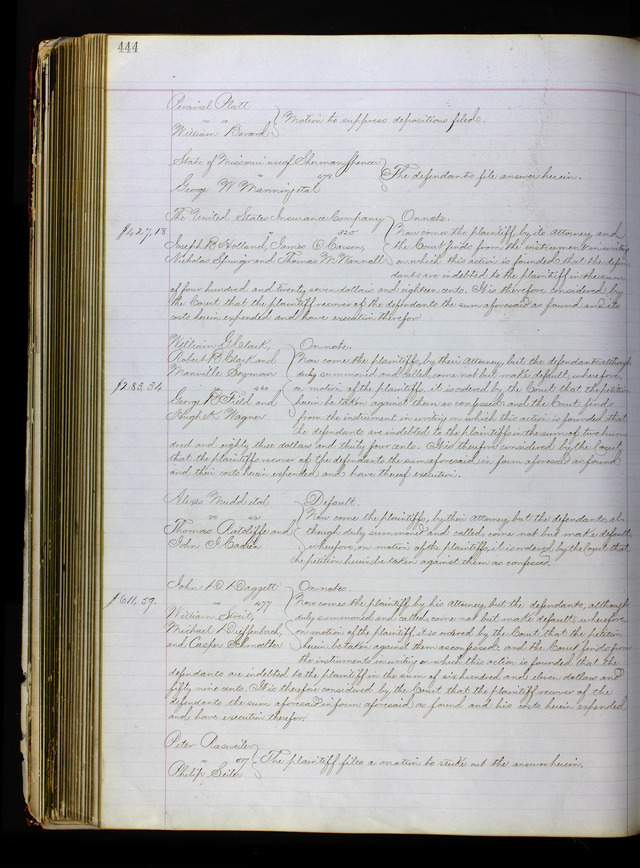 444
Percival Platt
vs
William Berard
Motion to suppress depositions filed.
State of Missouri use of Sherman Spencer
vs
George W Manning et al
The defendants file answer herein.
The United States Insurance Company
vs
$427.18
Joseph B Holland, James O Carson,
Nicholas Springer and Thomas W
On note.
Now comes the plaintiff by its Attorney and
the Court finds from the instrument in writing
on which this action is founded that the defen
dants are indebted to the plaintiff in the sum
of four hundred and twenty seven dollars and eighteen cents. It is therefore considered by
the Court that the plaintiff recover of the defendants the sum aforesaid as found and its
costs herein expended and have execution therefor.
William G Clark,
Robert B Clark and
Manville Seymour
vs 460
$283.34
George B Field and
Hugh K Wagner
On note.
Now come the plaintiffs, by their Attorney, but the defendants although
duly summoned and called come not but make default; wherefore,
on motion of the plaintiffs it is ordered by the Court that the petition
herein be taken against them as confessed: and the Court finds
from the instrument in writing on which this action is founded that
the defendants are indebted to the plaintiffs in the sum of two hun
dred and eighty three dollars and thirty four cents. It is therefore considered by the Court
that the plaintiffs recover of the defendants the sum aforesaid in form aforesaid as found
and their costs herein expended and have thereof execution.
Alexis Mudd et al
vs
Thomas Ratcliffe and
John J
Default.
Now come the plaintiffs, by their Attorney but the defendants, al
though duly summoned and called, come not but make default
wherefore, on motion of the plaintiffs, it is ordered by the Court that
the petition herein be taken against them as confessed.
John D Daggett
vs 477
$611.59.
William Freit,
Michael Dieffenbach,
and Casper Schmalter
On notes.
Now comes the plaintiff by his Attorney, but the defendants, although
duly summoned and called, come not but make default; wherefore
on motion of the plaintiff it is ordered by the Court that the petition
herein be taken against them as confessed: and the Court finds from
the instruments in writing on which this action is founded that the
defendants are indebted to the plaintiff in the sum of six hundred and eleven dollars and
fifty nine cents. It is therefore considered by the Court that the plaintiff recover of the
defendants the sum aforesaid in form aforesaid as found and his costs herein expended
and have execution therefor.
Peter Rasweiler
vs
Philip Seith
The plaintiff files a motion to strike out the answer herein.